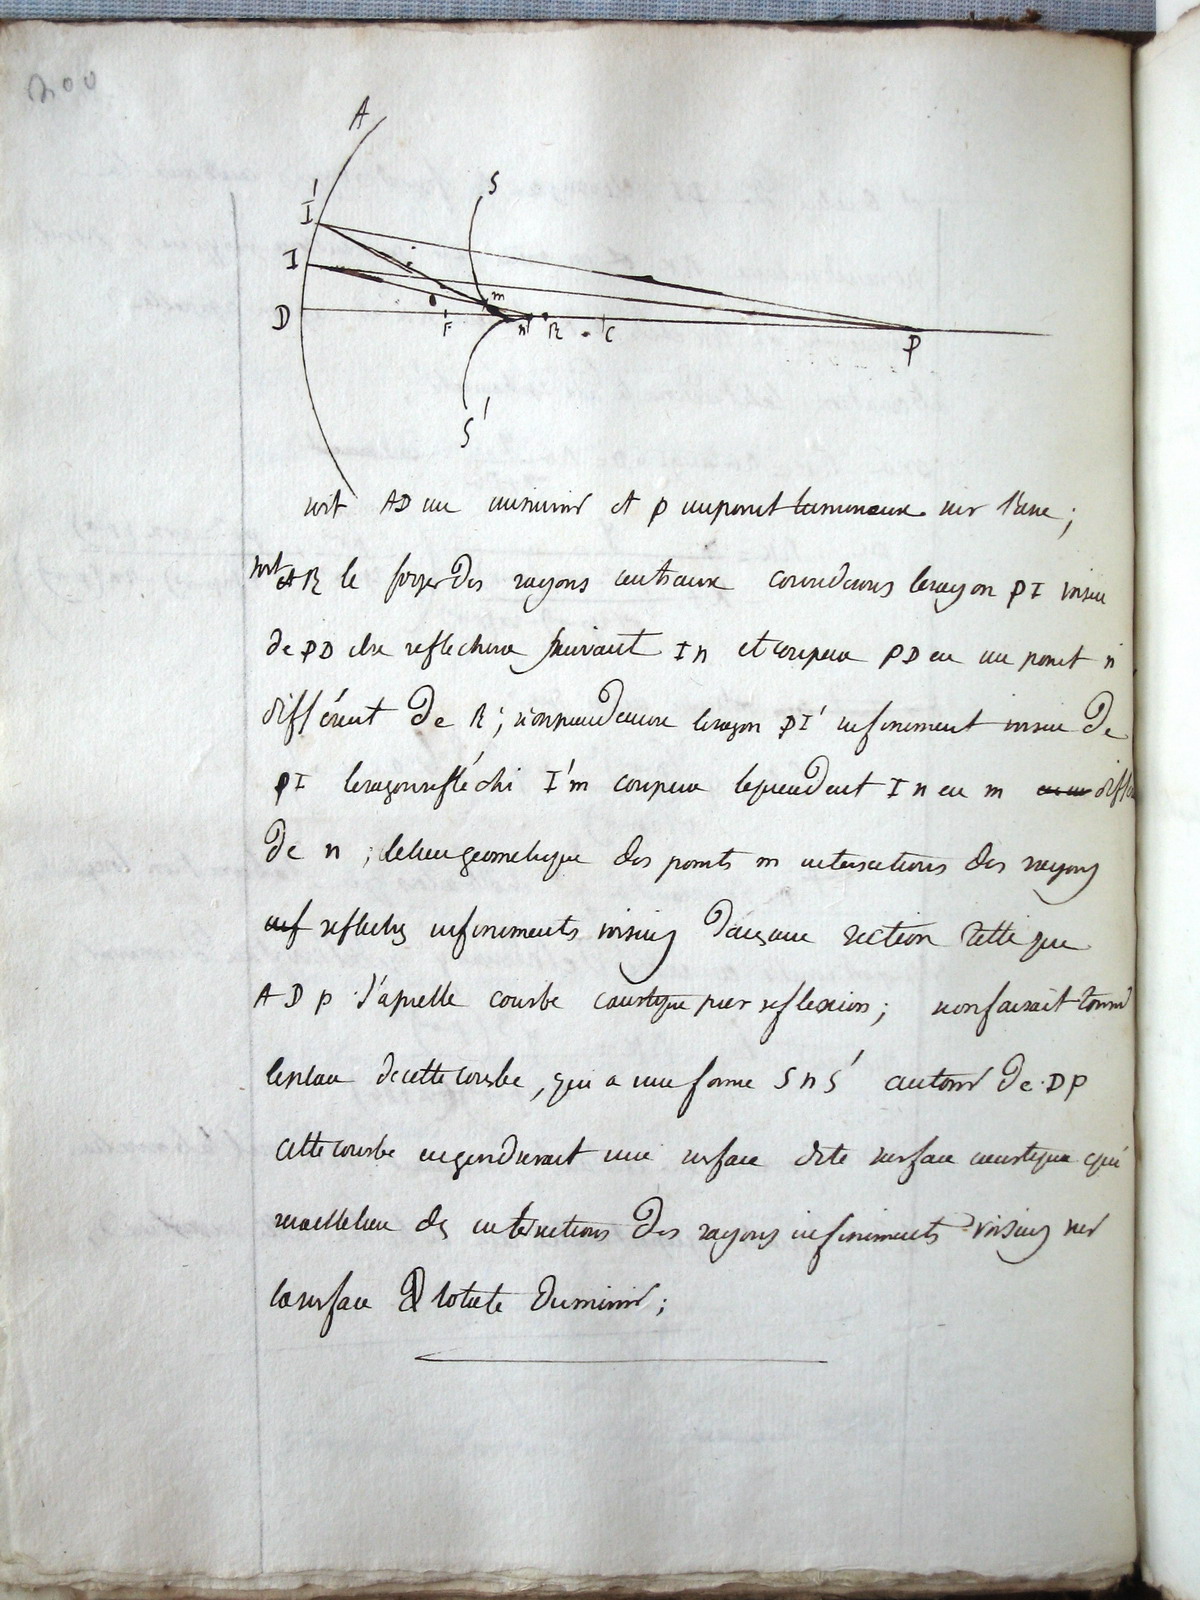 200
A
S
I'
I
m
D
F
n
R
C
P
S'
soit AD un miroir et P un point lumineux sur l'axe ;
soit R le foyer des rayons centraux considerons le rayon PI voisin
de PD il se reflechira suivant In et coupera PD en un point n
différent de R ; si on prend encore le rayon PI' infiniment voisin de
PI le rayon réfléchi I'm coupera le précédent In en m
de n ; le lieu geometrique des points m intersections des rayons
inf reflechis infiniments voisins dans une section telle que
ADP s'apelle courbe caustique par reflexion ; si on faisait tourner
le plan de cette courbe, qui a une forme SnS' autour de DP
cette courbe engendrerait une surface dite surface caustique qui
sera le lieu des intersections des rayons infiniments voisins sur
la surface totale du miroir ;